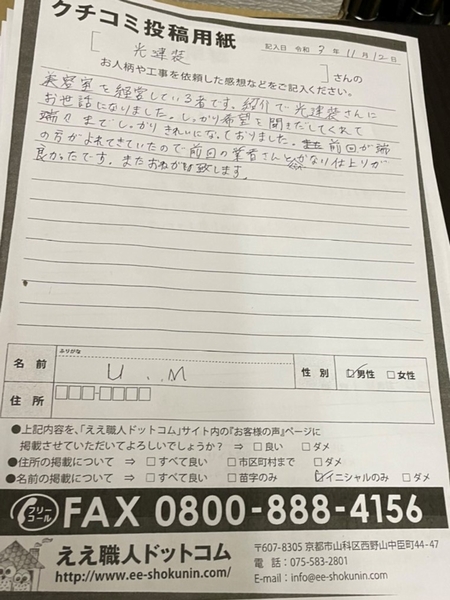 クチコミ投稿用紙
記入日 令和 7 年 11 月 12 日
[ 光達装 ] さんの
お人柄や工事を依頼した感想などをご記入ください。
美容室を経営している者です。紹介で光達装さんに
お世話になりました。しっかり希望を聞きだしてくれて
端々までしっかりきれいになっておりました。前回が端
の方がよれてきていたので前回の業者さんと
かなり仕上りが
良かったです。またおねがい致します。
ふりがな
名前 U..M 性別 ☑男性 □女性
住所 □□□-□□□□
●上記内容を、「ええ職人ドットコム」サイト内の『お客様の声』ページに
掲載させていただいてよろしいでしょうか? ⇒ □良い □ダメ
●住所の掲載について ⇒ □すべて良い □市区町村まで □ダメ
●名前の掲載について ⇒ □すべて良い □苗字のみ ☑イニシャルのみ □ダメ
フリーコール FAX 0800-888-4156
ええ職人ドットコム
http://www.ee-shokunin.com/
〒607-8305 京都市山科区西野山中臣町44-47
電話:075-583-2801
E-mail:info@ee-shokunin.com